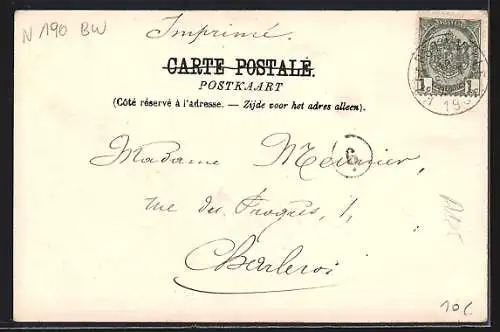 N 190 BW
Imprimé.
CARTE POSTALE.
POSTKAART
(Côté réservé à l'adresse. — Zijde voor het adres alleen).
Madame Meunier,
rue du Progrès, 1,
Charleroi
10€